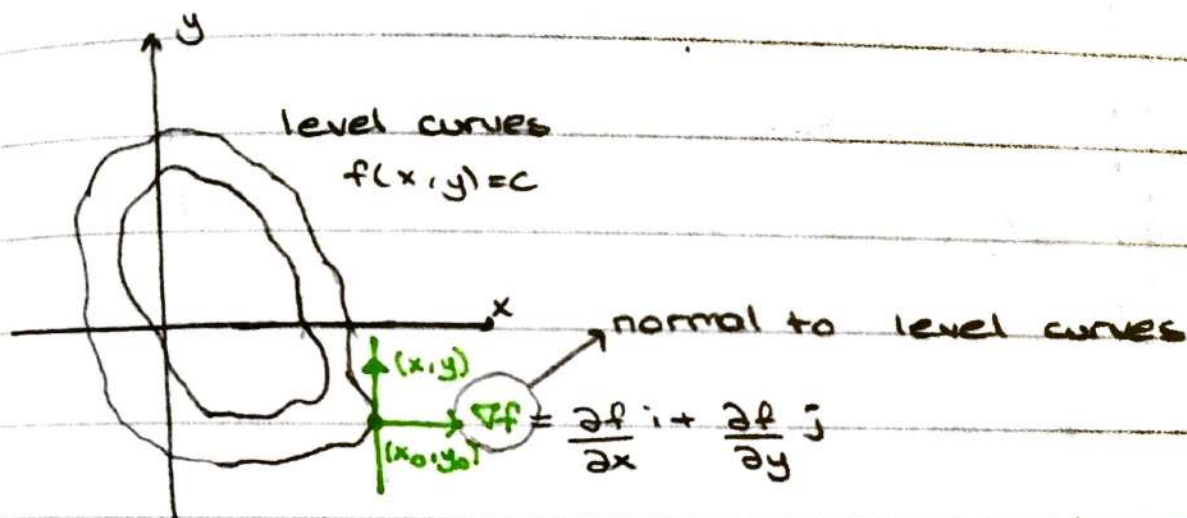 y
level curves
f(x,y)=c
x
normal to level curves
(x,y)
∇f = ∂f/∂x i + ∂f/∂y j
(x₀,y₀)